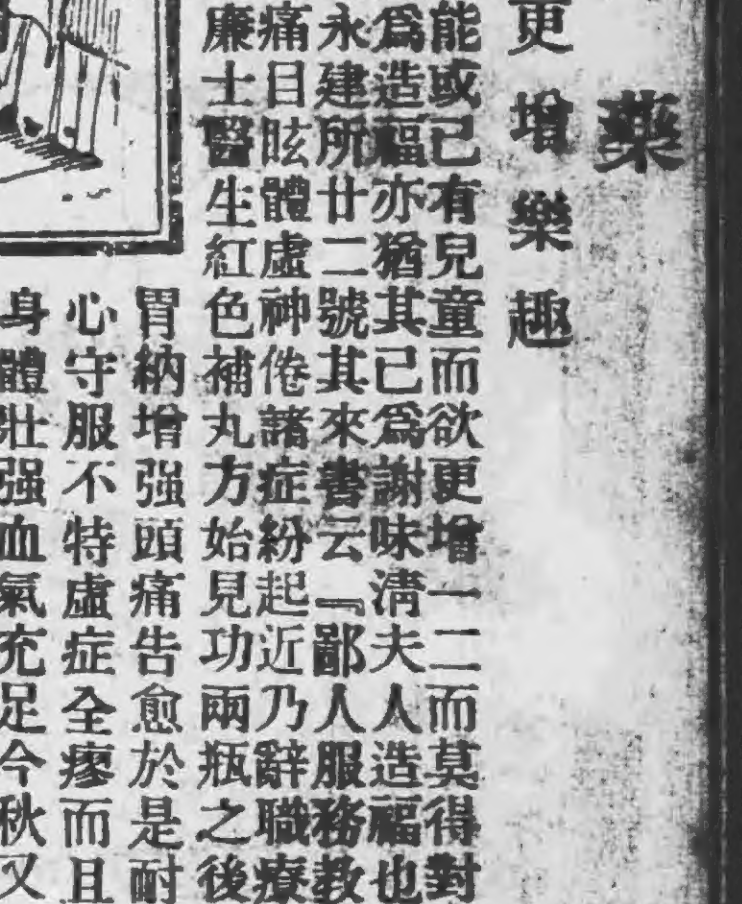 藥
更增樂趣
能或已有兒童而欲更增一二而莫得對
爲造福亦猶其已爲謝味淸夫人造福也
永建所廿二號其來書云『鄙人服務教
痛目眩體虛神倦諸症紛起近乃辭職療
廉士醫生紅色補丸方始見功兩瓶之後
胃納增強頭痛告愈於是耐
心守服不特虛症全瘳而且
身體壯强血氣充足今秋又